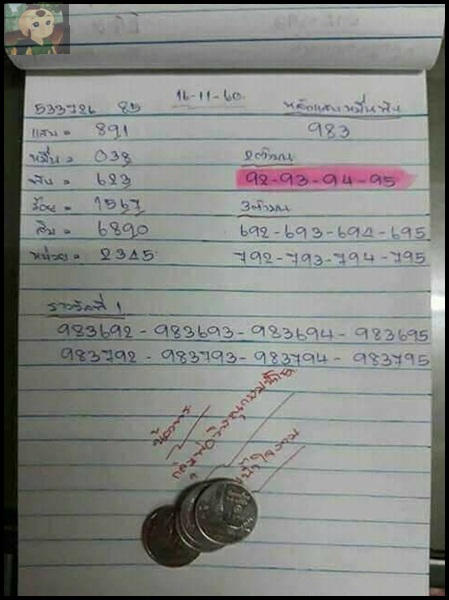 16-11-60
533726 85 หลักแสน หมื่น พัน
แสน = 891 983
หมื่น = 038 2ตัวบน
พัน = 623 92-93-94-95
ร้อย = 1567 3ตัวบน
สิบ = 6890 692-693-694-695
หน่วย = 2345 792-793-794-795
รางวัลที่ 1
983692 - 983693 - 983694 - 983695
983792 - 983793 - 983794 - 983795